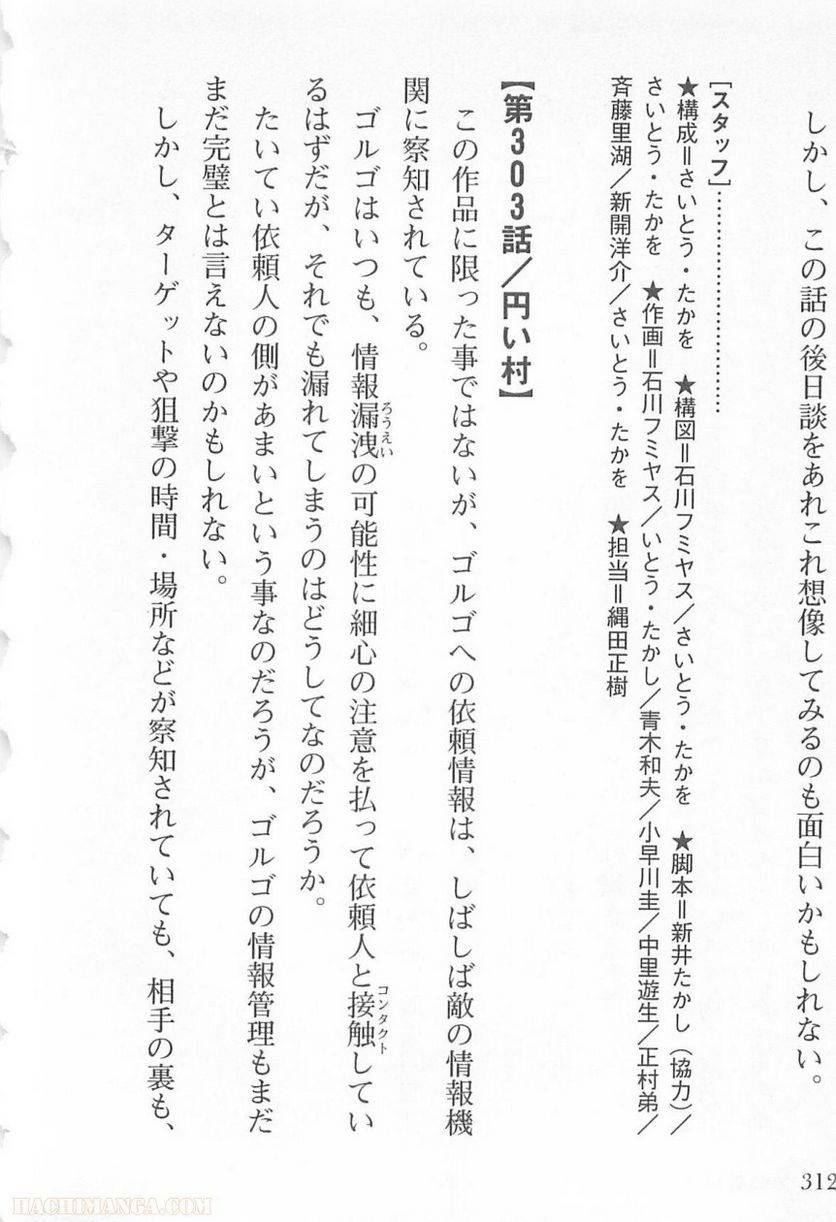 しかし、この話の後日談をあれこれ想像してみるのも面白いかもしれない。
[スタッフ]……………………………
★構成＝さいとう・たかを　★構図＝石川フミヤス／さいとう・たかを　★脚本＝新井たかし（協力）／
さいとう・たかを　★作画＝石川フミヤス／いとう・たかし／青木和夫／小早川圭／中里遊生／正村弟／
斉藤里湖／新開洋介／さいとう・たかを　★担当＝縄田正樹
【第303話／円い村】
この作品に限った事ではないが、ゴルゴへの依頼情報は、しばしば敵の情報機
関に察知されている。
ゴルゴはいつも、情報漏洩の可能性に細心の注意を払って依頼人と接触してい
ろうえい
コンタクト
るはずだが、それでも漏れてしまうのはどうしてなのだろうか。
たいてい依頼人の側があまいという事なのだろうが、ゴルゴの情報管理もまだ
まだ完璧とは言えないのかもしれない。
しかし、ターゲットや狙撃の時間・場所などが察知されていても、相手の裏も、
312
HACHIMANGA.COM